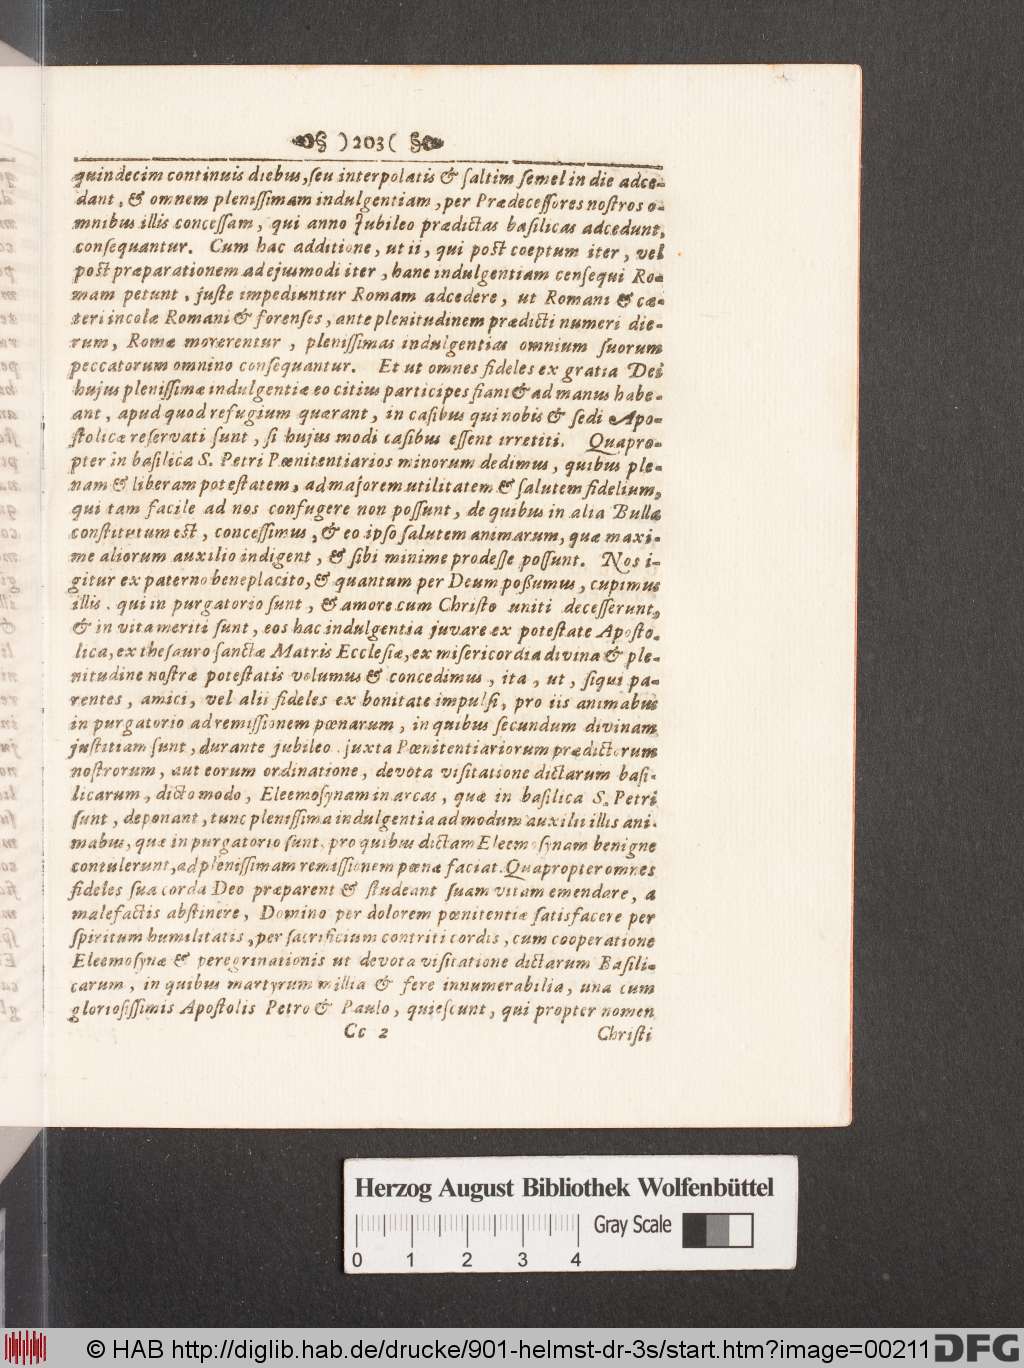 )203(
quindecim continuis diebus, seu interpolatis & saltim semel in die adce-
dant, & omnem plenissimam indulgentiam, per Prædecessores nostros o-
mnibus illis concessam, qui anno Jubileo prædictas basilicas adcedunt,
consequantur. Cum hac additione, ut ii, qui post coeptum iter, vel
post præparationem ad ejusmodi iter, hanc indulgentiam consequi Ro-
mam petunt, juste impediuntur Romam adcedere, ut Romani & cæ-
teri incolæ Romani & forenses, ante plenitudinem prædicti numeri die-
rum, Romæ morerentur, plenissimas indulgentias omnium suorum
peccatorum omnino consequantur. Et ut omnes fideles ex gratia Dei
hujus plenissimæ indulgentiæ eo citius participes fiant & ad manus habe-
ant, apud quod refugium quærant, in casibus qui nobis & sedi Apo-
stolicæ reservati sunt, si hujus modi casibus essent irretiti. Quapro-
pter in basilica S. Petri Pœnitentiarios minorum dedimus, quibus ple-
nam & liberam potestatem, ad majorem utilitatem & salutem fidelium,
qui tam facile ad nos confugere non possunt, de quibus in alia Bulla
constitutum est, concessimus, & eo ipso salutem animarum, quæ maxi-
me aliorum auxilio indigent, & sibi minime prodesse possunt. Nos i-
gitur ex paterno beneplacito, & quantum per Deum poßumus, cupimus
illis, qui in purgatorio sunt, & amore cum Christo uniti decesserunt,
& in vita meriti sunt, eos hac indulgentia juvare ex potestate Aposto-
lica, ex thesauro sanctæ Matris Ecclesiæ, ex misericordia divina & ple-
nitudine nostræ potestatis volumus & concedimus, ita, ut, siqui pa-
rentes, amici, vel alii fideles ex bonitate impulsi, pro iis animabus
in purgatorio ad remissionem pœnarum, in quibus secundum divinam
justitiam sunt, durante jubileo juxta Pœnitentiariorum prædictorum
nostrorum, aut eorum ordinatione, devota visitatione dictarum basi-
licarum, dicto modo, Eleemosynam in arcas, quæ in basilica S. Petri
sunt, deponant, tunc plenissima indulgentia ad modum auxilii illis ani-
mabus, quæ in purgatorio sunt, pro quibus dictam Eleemosynam benigne
contulerunt, ad plenissimam remissionem pœnæ faciat. Quapropter omnes
fideles sua corda Deo præparent & studeant suam vitam emendare, a
malefactis abstinere, Domino per dolorem pœnitentiæ satisfacere per
spiritum humilitatis, per sacrificium contriti cordis, cum cooperatione
Eleemosynæ & peregrinationis ut devota visitatione dictarum Basili-
carum, in quibus martyrum millia & fere innumerabilia, una cum
gloriosissimis Apostolis Petro & Paulo, quiescunt, qui propter nomen
Cc 2 Christi
Herzog August Bibliothek Wolfenbüttel
Gray Scale
0 1 2 3 4
© HAB http://diglib.hab.de/drucke/901-helmst-dr-3s/start.htm?image=00211
DFG